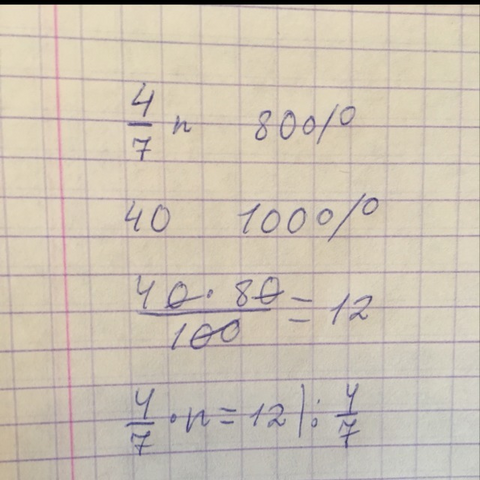 4/7 n 80%
40 100%
40 · 80 / 100 = 12
4/7 · n = 12 | : 4/7